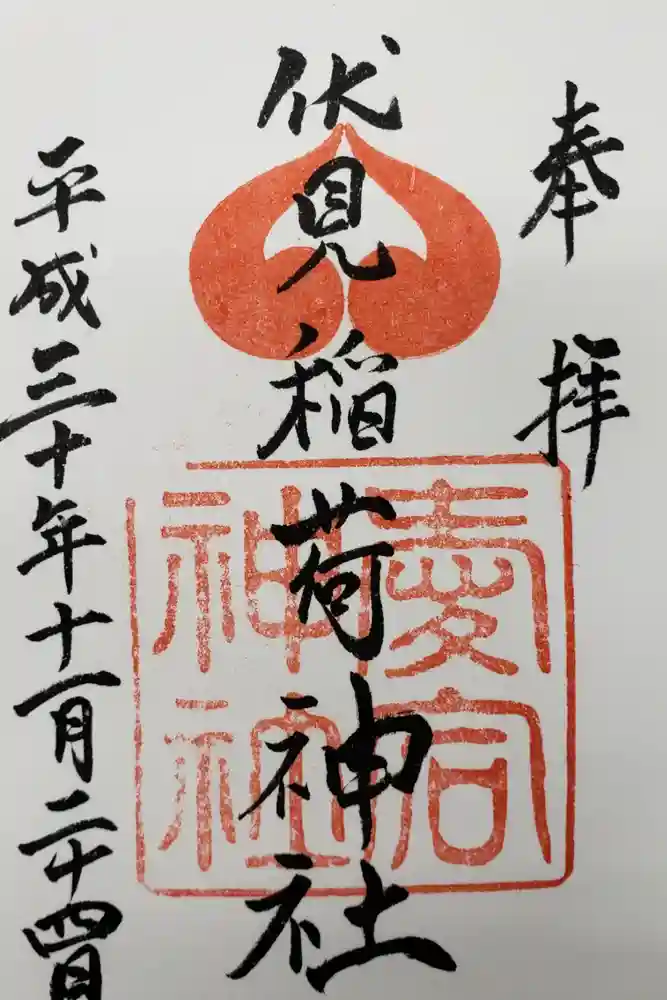 奉拝
伏見稲荷神社
平成三十年十一月二十四日
愛宕神社